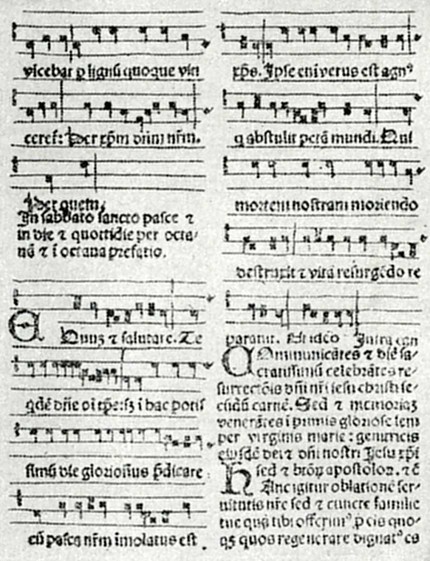 vicebat p lignū quoque vin
ceret: Per xp̄m dn̄m nr̄m.
Per quem.
In sabbato sancto pasce ⁊
in die ⁊ quottidie per octa-
nā ⁊ ī octaua prefatio.
Equuz ⁊ salutare. Te
qdē dn̄e oī tp̄e: sz ī hac potis
simū die gloriosius p̄dicare
cū pasca nr̄m īmolatus est
xp̄s. Ipse eni verus est agnꝰ
q abstulit pctā mundi. Qui
mortem nostram moriendo
destruxit ⁊ vitā resurgēdo re
parauit. Et ideo Infra can
Communicātes ⁊ diē sa-
cratissimū celebrātes re-
surrectōis dn̄i nr̄i iesu christi se-
cūdū carnē. Sed ⁊ memoriaz
venerātes ī primis gloriose sem
per virginis marie: genitricis
eiusdē dei ⁊ dn̄i nostri Jesu xp̄i
sed ⁊ btōrū apostoloꝝ. ⁊c̄
Hanc igitur oblationē ser-
uitutis nr̄e sed ⁊ cuncte familie
tue quā tibi offerimꝰ. p̄ cis quo-
qz quos regenerare dignatꝰ es